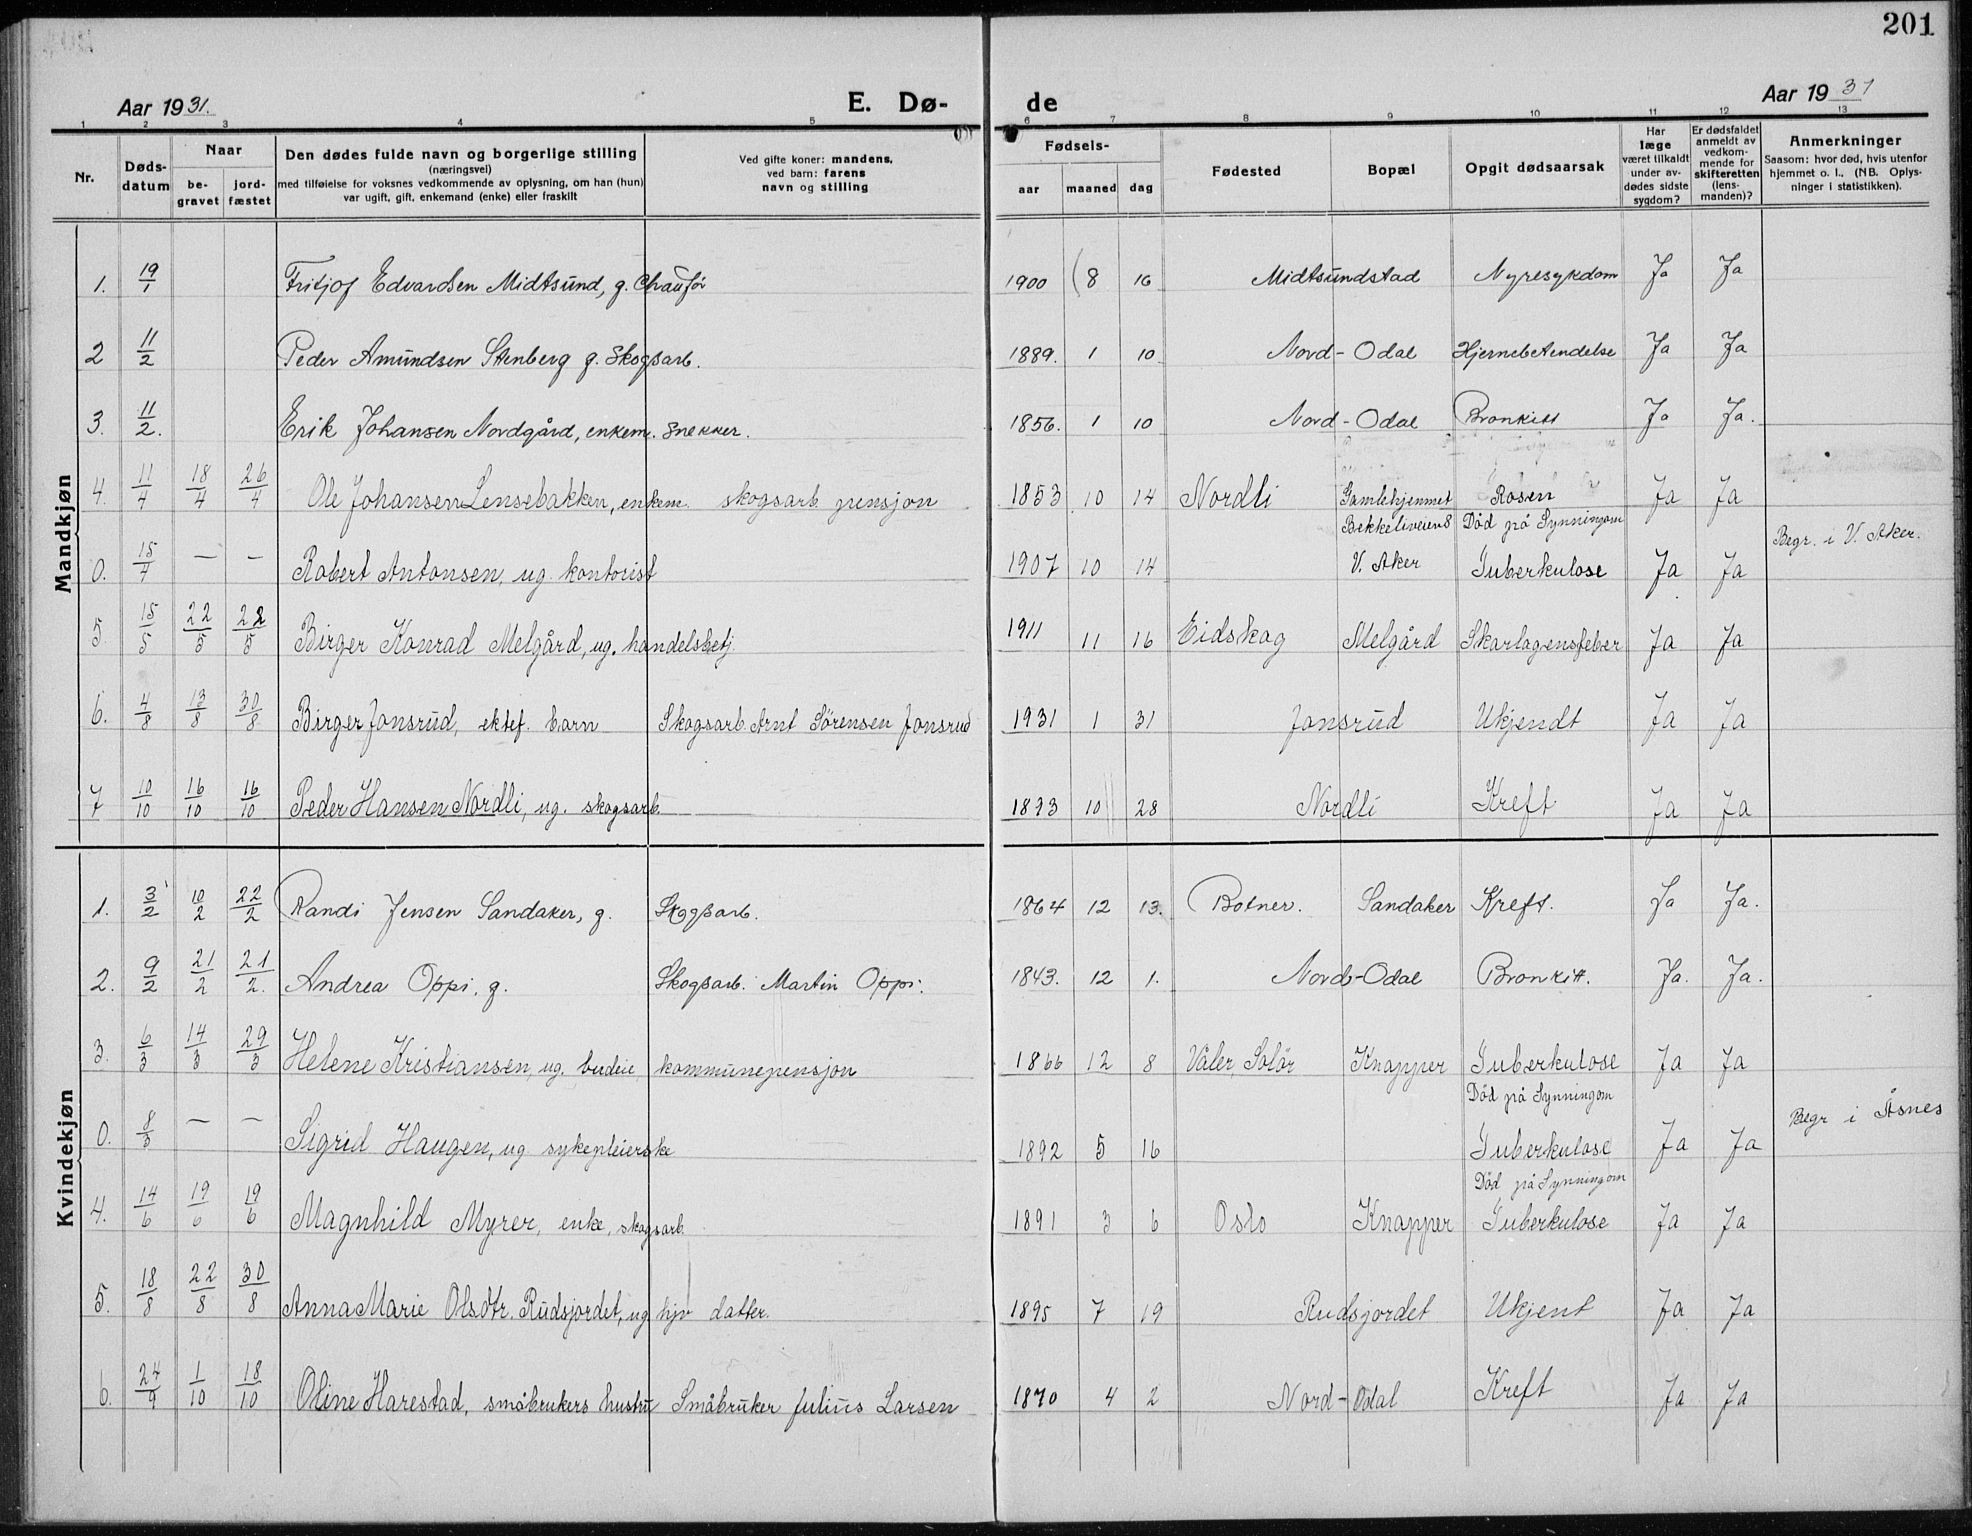 201
Aar 1931. E. Dø- de Aar 1931
1 2 3 4 5 6 7 8 9 10 11 12 13
Nr. Døds-datum Naar be-gravet jord-fæstet Den dødes fulde navn og borgerlige stilling (næringsvei) med tilføielse for voksnes vedkommende av oplysning, om han (hun) var ugift, gift, enkemand (enke) eller fraskilt Ved gifte koner: mandens, ved barn: farens navn og stilling Fødsels- aar maaned dag Fødested Bopæl Opgit dødsaarsak Har læge været tilkaldt under av-dødes sidste sygdom? Er dødsfaldet anmeldt av vedkom-mende for skifteretten (lens-manden)? Anmerkninger Saasom: hvor død, hvis utenfor hjemmet o. l., (NB. Oplys-ninger i statistikken).
Mandkjøn
1. 19/1 Fritjof Edvardsen Midtsund, g. Chaufør 1900 (8 16 Midtsundstad Nyresykdom Ja Ja
2 11/2 Peder Amundsen Stenberg g. Skogsarb. 1889. 1 10 Nord-Odal Hjernebetendelse Ja Ja
3. 11/2. Erik Johansen Nordgård, enkem. Snekker. 1856. 1 10 Nord-Odal Bronkitt Ja Ja.
4. 11/4 18/4 26/4 Ole Johansen Lensebakken, enkem. skogsarb. pensjon 1853 10 14 Nordli Gamlehjemmet Rosen Ja Ja
Bekkeliveien 8 Död på Synningom Begr. i V. Aker.
0. 15/4 — — Robert Antonsen, ug. kontorist 1907 10 14 V. Aker Tuberkulose Ja Ja
5 15/5 22/5 22/5 Birger Konrad Melgård, ug. handelsbetj. 1911 11 16 Eidskog Melgård Skarlagensfeber Ja Ja
6. 4/8 13/8 30/8 Birger Jonsrud, ektef. barn Skogsarb. Arnt Sörensen Jonsrud 1931 1 31 Jonsrud Ukjendt Ja Ja
7 10/10 16/10 16/10 Peder Hansen Nordli, ug. skogsarb. 1893 10 28 Nordli Kreft Ja Ja
Kvindekjøn
1. 3/2 10/2 22/2 Randi Jensen Sandaker, g. Skogsarb. 1864 12 13. Botner. Sandaker Kreft. Ja Ja.
2. 9/2 21/2 21/2. Andrea Oppi. g. Skogsarb. Martin Oppi. 1843. 12 1. Nord-Odal Bronkitt. Ja. Ja.
3. 6/3 14/3 29/3 Helene Kristiansen, ug. budeie, kommunepensjon 1866 12 8 Våler, Solör Knapper Tuberkulose Ja Ja
Död på Synningom Begr i Åsnes
0. 8/3 — — Sigrid Haugen, ug sykepleierske 1892 5 16 Tuberkulose Ja Ja
Död på Synningom
4. 14/6 19/6 19/6 Magnhild Myrer, enke, skogsarb. 1891 3 6 Oslo Knapper Tuberkulose Ja Ja
5. 18/8 22/8 30/8 Anna Marie Olsdtr. Rudsjordet, ug hjv datter. 1895 7 19 Rudsjordet Ukjent Ja Ja
6. 24/9 1/10 18/10 Oline Harestad, småbrukers hustru Småbruker Julius Larsen 1870 4 2 Nord-Odal Kreft Ja Ja